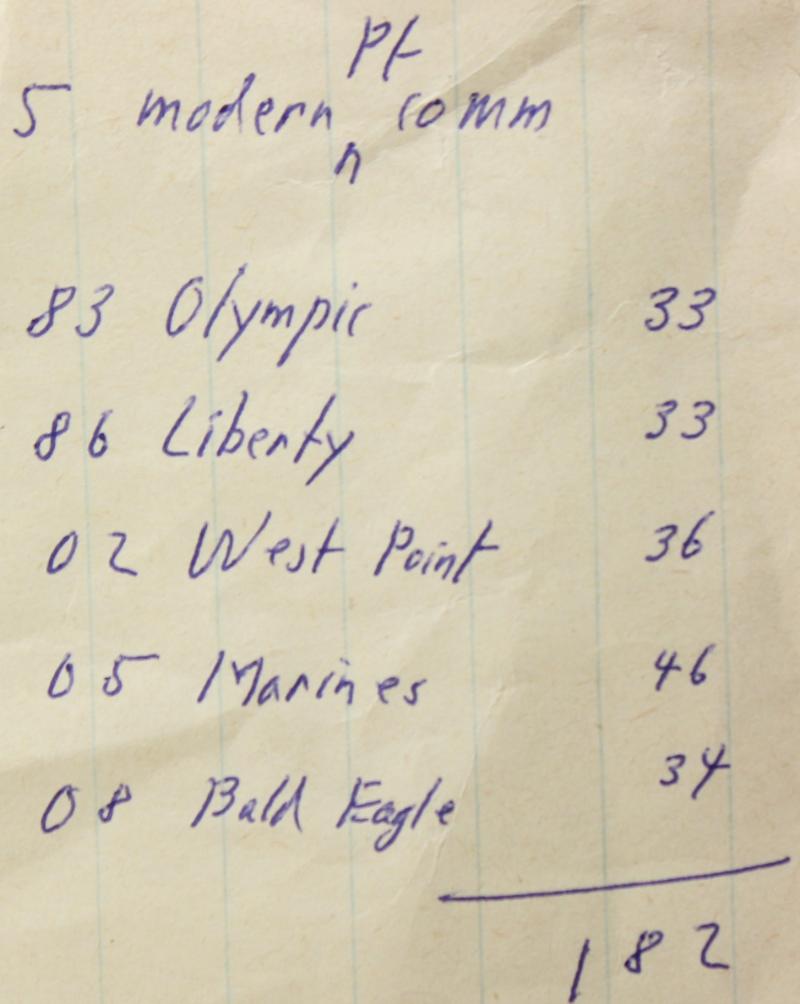 Pf
5 modern comm
n
83 Olympic 33
86 Liberty 33
02 West Point 36
05 Marines 46
08 Bald Eagle 34
182